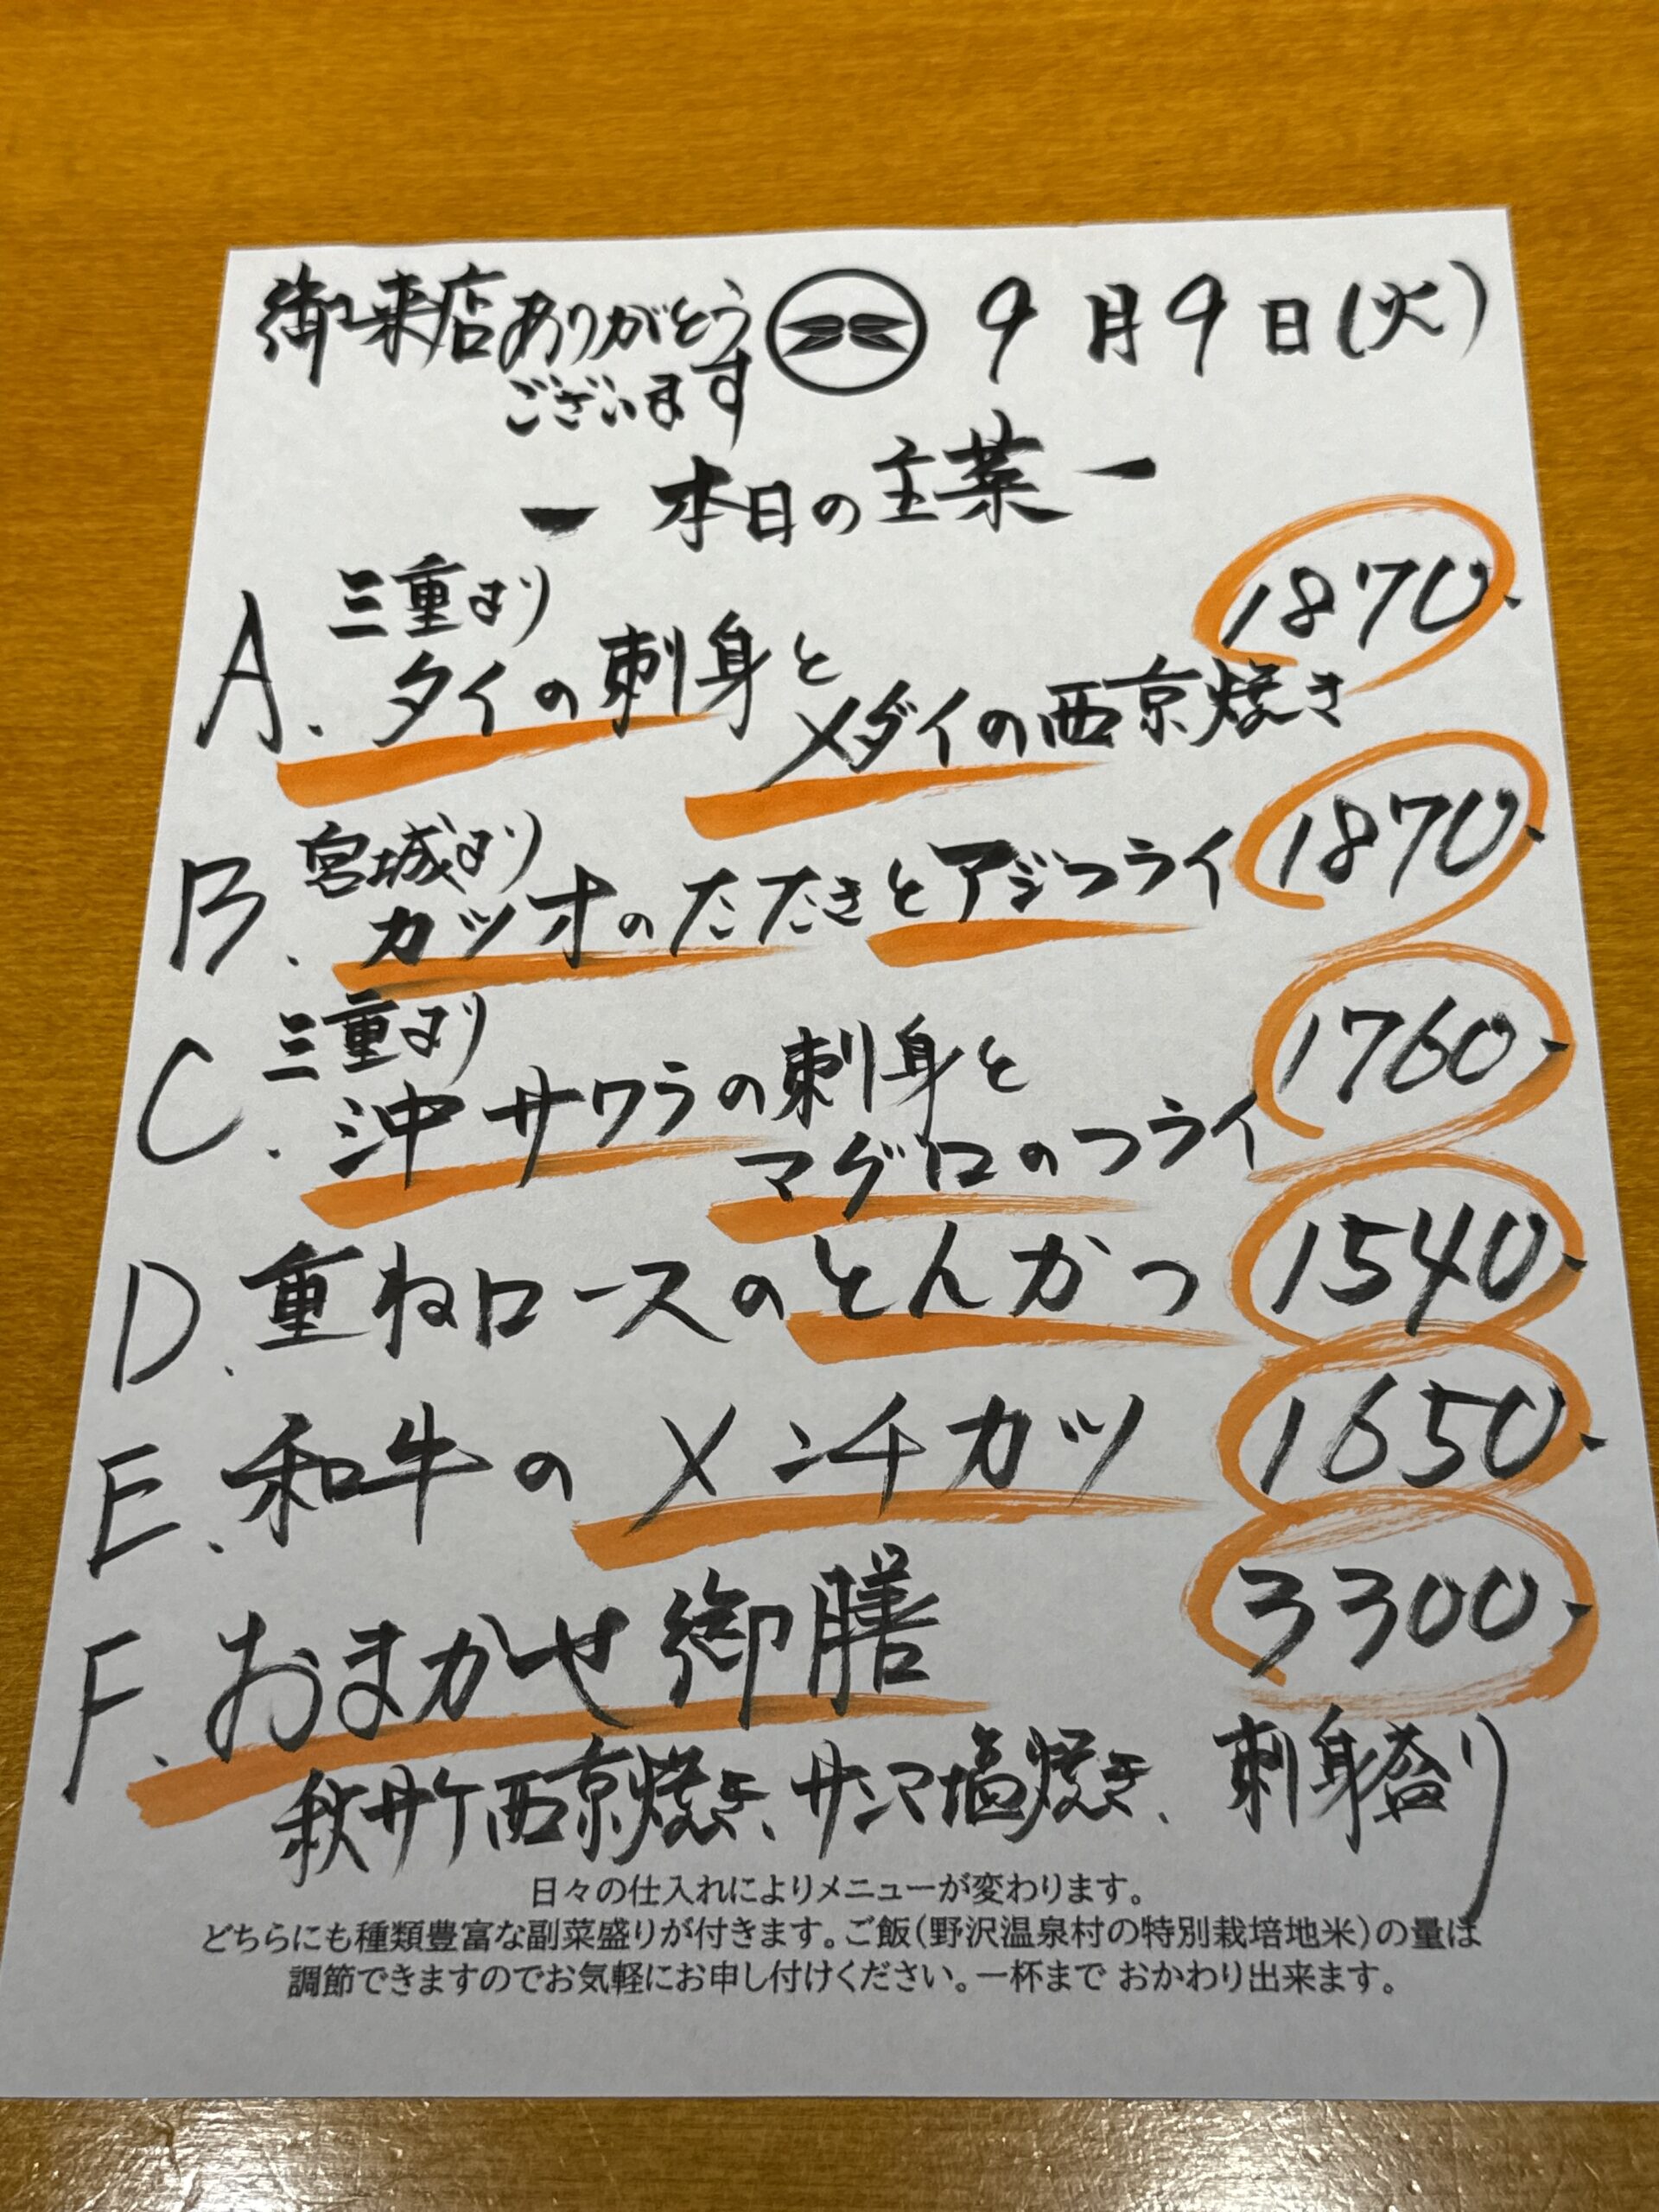 御来店ありがとう 9月9日(火)
ございます
ー 本日の主菜 ー
三重より 1870
A. タイの刺身と
メダイの西京焼き
宮城より 1870
B. カツオのたたきとアジフライ
三重より 1760
C. 沖サワラの刺身と
マグロのフライ
D. 重ねロースのとんかつ 1540
E. 和牛のメンチカツ 1650
F. おまかせ御膳 3300
秋サケ西京焼き、サンマ塩焼き、刺身盛り
日々の仕入れによりメニューが変わります。
どちらにも種類豊富な副菜盛りが付きます。ご飯(野沢温泉村の特別栽培地米)の量は
調節できますのでお気軽にお申し付けください。一杯まで おかわり出来ます。